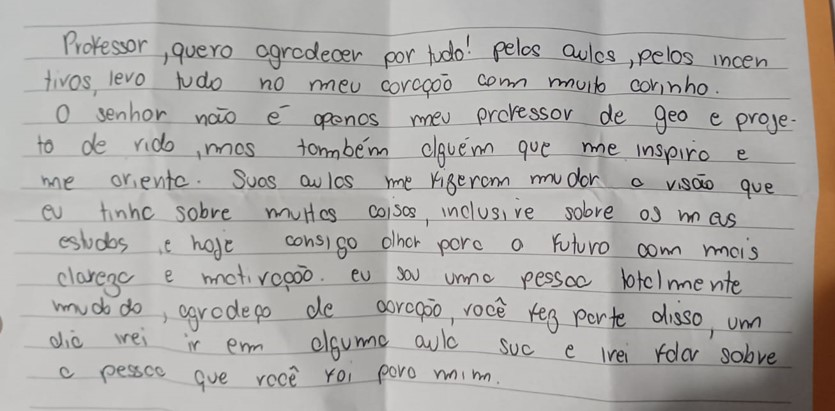 Professor, quero agradecer por tudo! pelos aulas, pelos incen
tivos, levo tudo no meu coração com muito carinho.
O senhor não é apenas meu professor de geo e proje-
to de vida, mas também alguém que me inspira e
me orienta. Suas aulas me fizeram mudar a visão que
eu tinha sobre muitas coisas, inclusive sobre os meus
estudos, e hoje consigo olhar para o futuro com mais
clareza e motivação. eu sou uma pessoa totalmente
mudado, agradeço de coração, você fez parte disso, um
dia irei ir em alguma aula sua e irei falar sobre
a pessoa que você foi para mim.